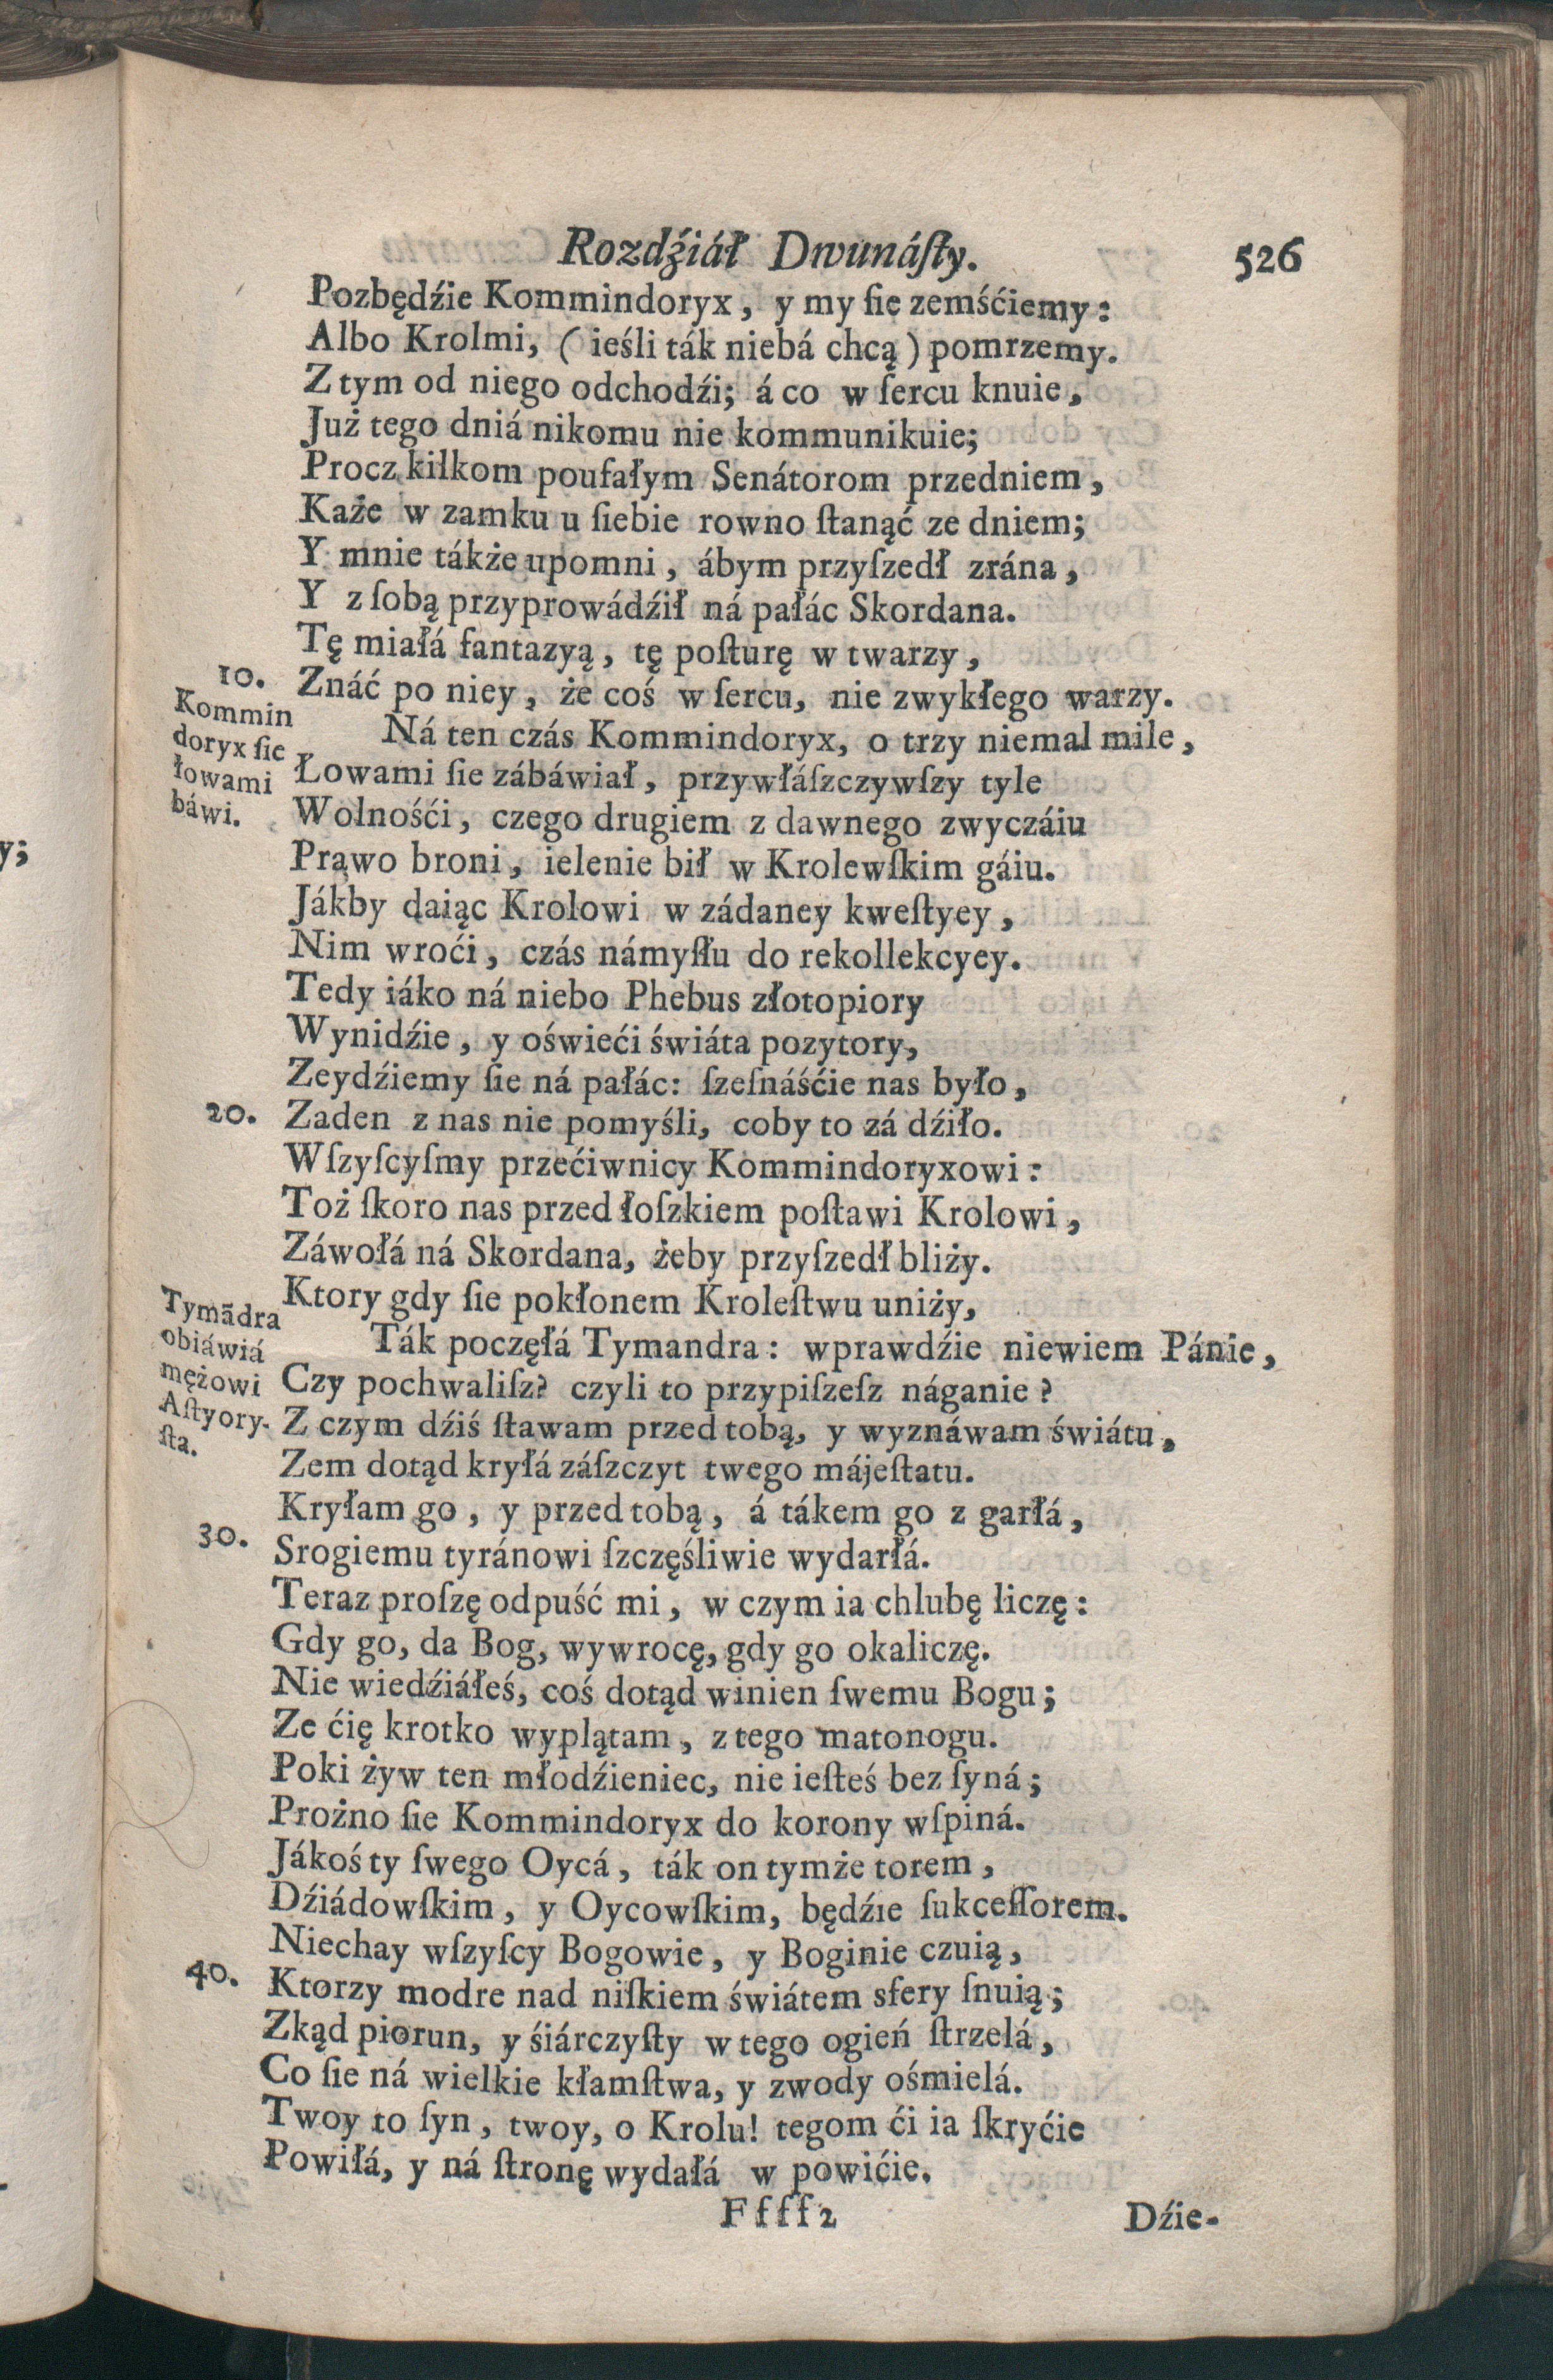 Rozdźiáł Dwunáſty. 526
Pozbędźie Kommindoryx, y my ſie zemśćiemy:
Albo Krolmi, (ieśli ták niebá chcą) pomrzemy.
Z tym od niego odchodźi; á co w ſercu knuie,
Już tego dniá nikomu nie kommunikuie;
Procz kilkom poufałym Senátorom przedniem,
Każe w zamku u ſiebie rowno ſtanąć ze dniem;
Y mnie tákże upomni, ábym przyſzedł zrána,
Y z ſobą przyprowádźił ná páłác Skordana.
Tę miałá fantazyą, tę poſturę w twarzy,
10. Znáć po niey, że coś w ſercu, nie zwykłego warzy.
Kommin
doryx ſie
łowami
báwi.
Ná ten czás Kommindoryx, o trzy niemal mile,
Łowami ſie zábáwiał, przywłáſzczywſzy tyle
Wolnośći, czego drugiem z dawnego zwyczáiu
Prawo broni, ielenie bił w Krolewſkim gáiu.
Jákby daiąc Krolowi w zádaney kweſtyey,
Nim wroći, czás námyſłu do rekollekcyey.
Tedy iáko ná niebo Phebus złotopiory
Wynidźie, y oświeći świáta pozytory,
Zeydźiemy ſie ná pałác: ſzeſnáśćie nas było,
20. Zaden z nas nie pomyśli, coby to zá dźiło.
Wſzyſcyſmy przećiwnicy Kommindoryxowi:
Toż ſkoro nas przed łoſzkiem poſtawi Krolowi,
Záwołá ná Skordana, żeby przyſzedł bliży.
Ktory gdy ſie pokłonem Kroleſtwu uniży,
Tymãdra
obiáwiá
mężowi
Aſtyory-
ſta.
Ták poczęłá Tymandra: wprawdźie niewiem Pánie,
Czy pochwaliſz? czyli to przypiſzeſz náganie?
Z czym dźiś ſtawam przed tobą, y wyznáwam świátu,
Zem dotąd kryłá záſzczyt twego májeſtatu.
Kryłam go, y przed tobą, á tákem go z garłá,
30. Srogiemu tyránowi ſzczęśliwie wydarłá.
Teraz proſzę odpuść mi, w czym ia chlubę liczę:
Gdy go, da Bog, wywrocę, gdy go okaliczę.
Nie wiedźiáłeś, coś dotąd winien ſwemu Bogu;
Ze ćię krotko wyplątam, z tego matonogu.
Poki żyw ten młodźieniec, nie ieſteś bez ſyná;
Prożno ſie Kommindoryx do korony wſpiná.
Jákoś ty ſwego Oycá, ták on tymże torem,
Dźiádowſkim, y Oycowſkim, będźie ſukceſſorem.
Niechay wſzyſcy Bogowie, y Boginie czuią,
40. Ktorzy modre nad niſkiem świátem sfery ſnuią;
Zkąd piorun, y śiárczyſty w tego ogień ſtrzelá,
Co ſie ná wielkie kłamſtwa, y zwody ośmielá.
Twoy to ſyn, twoy, o Krolu! tegom ći ia ſkryćie
Powiłá, y ná ſtronę wydałá w powićie.
Ffff2 Dźie-